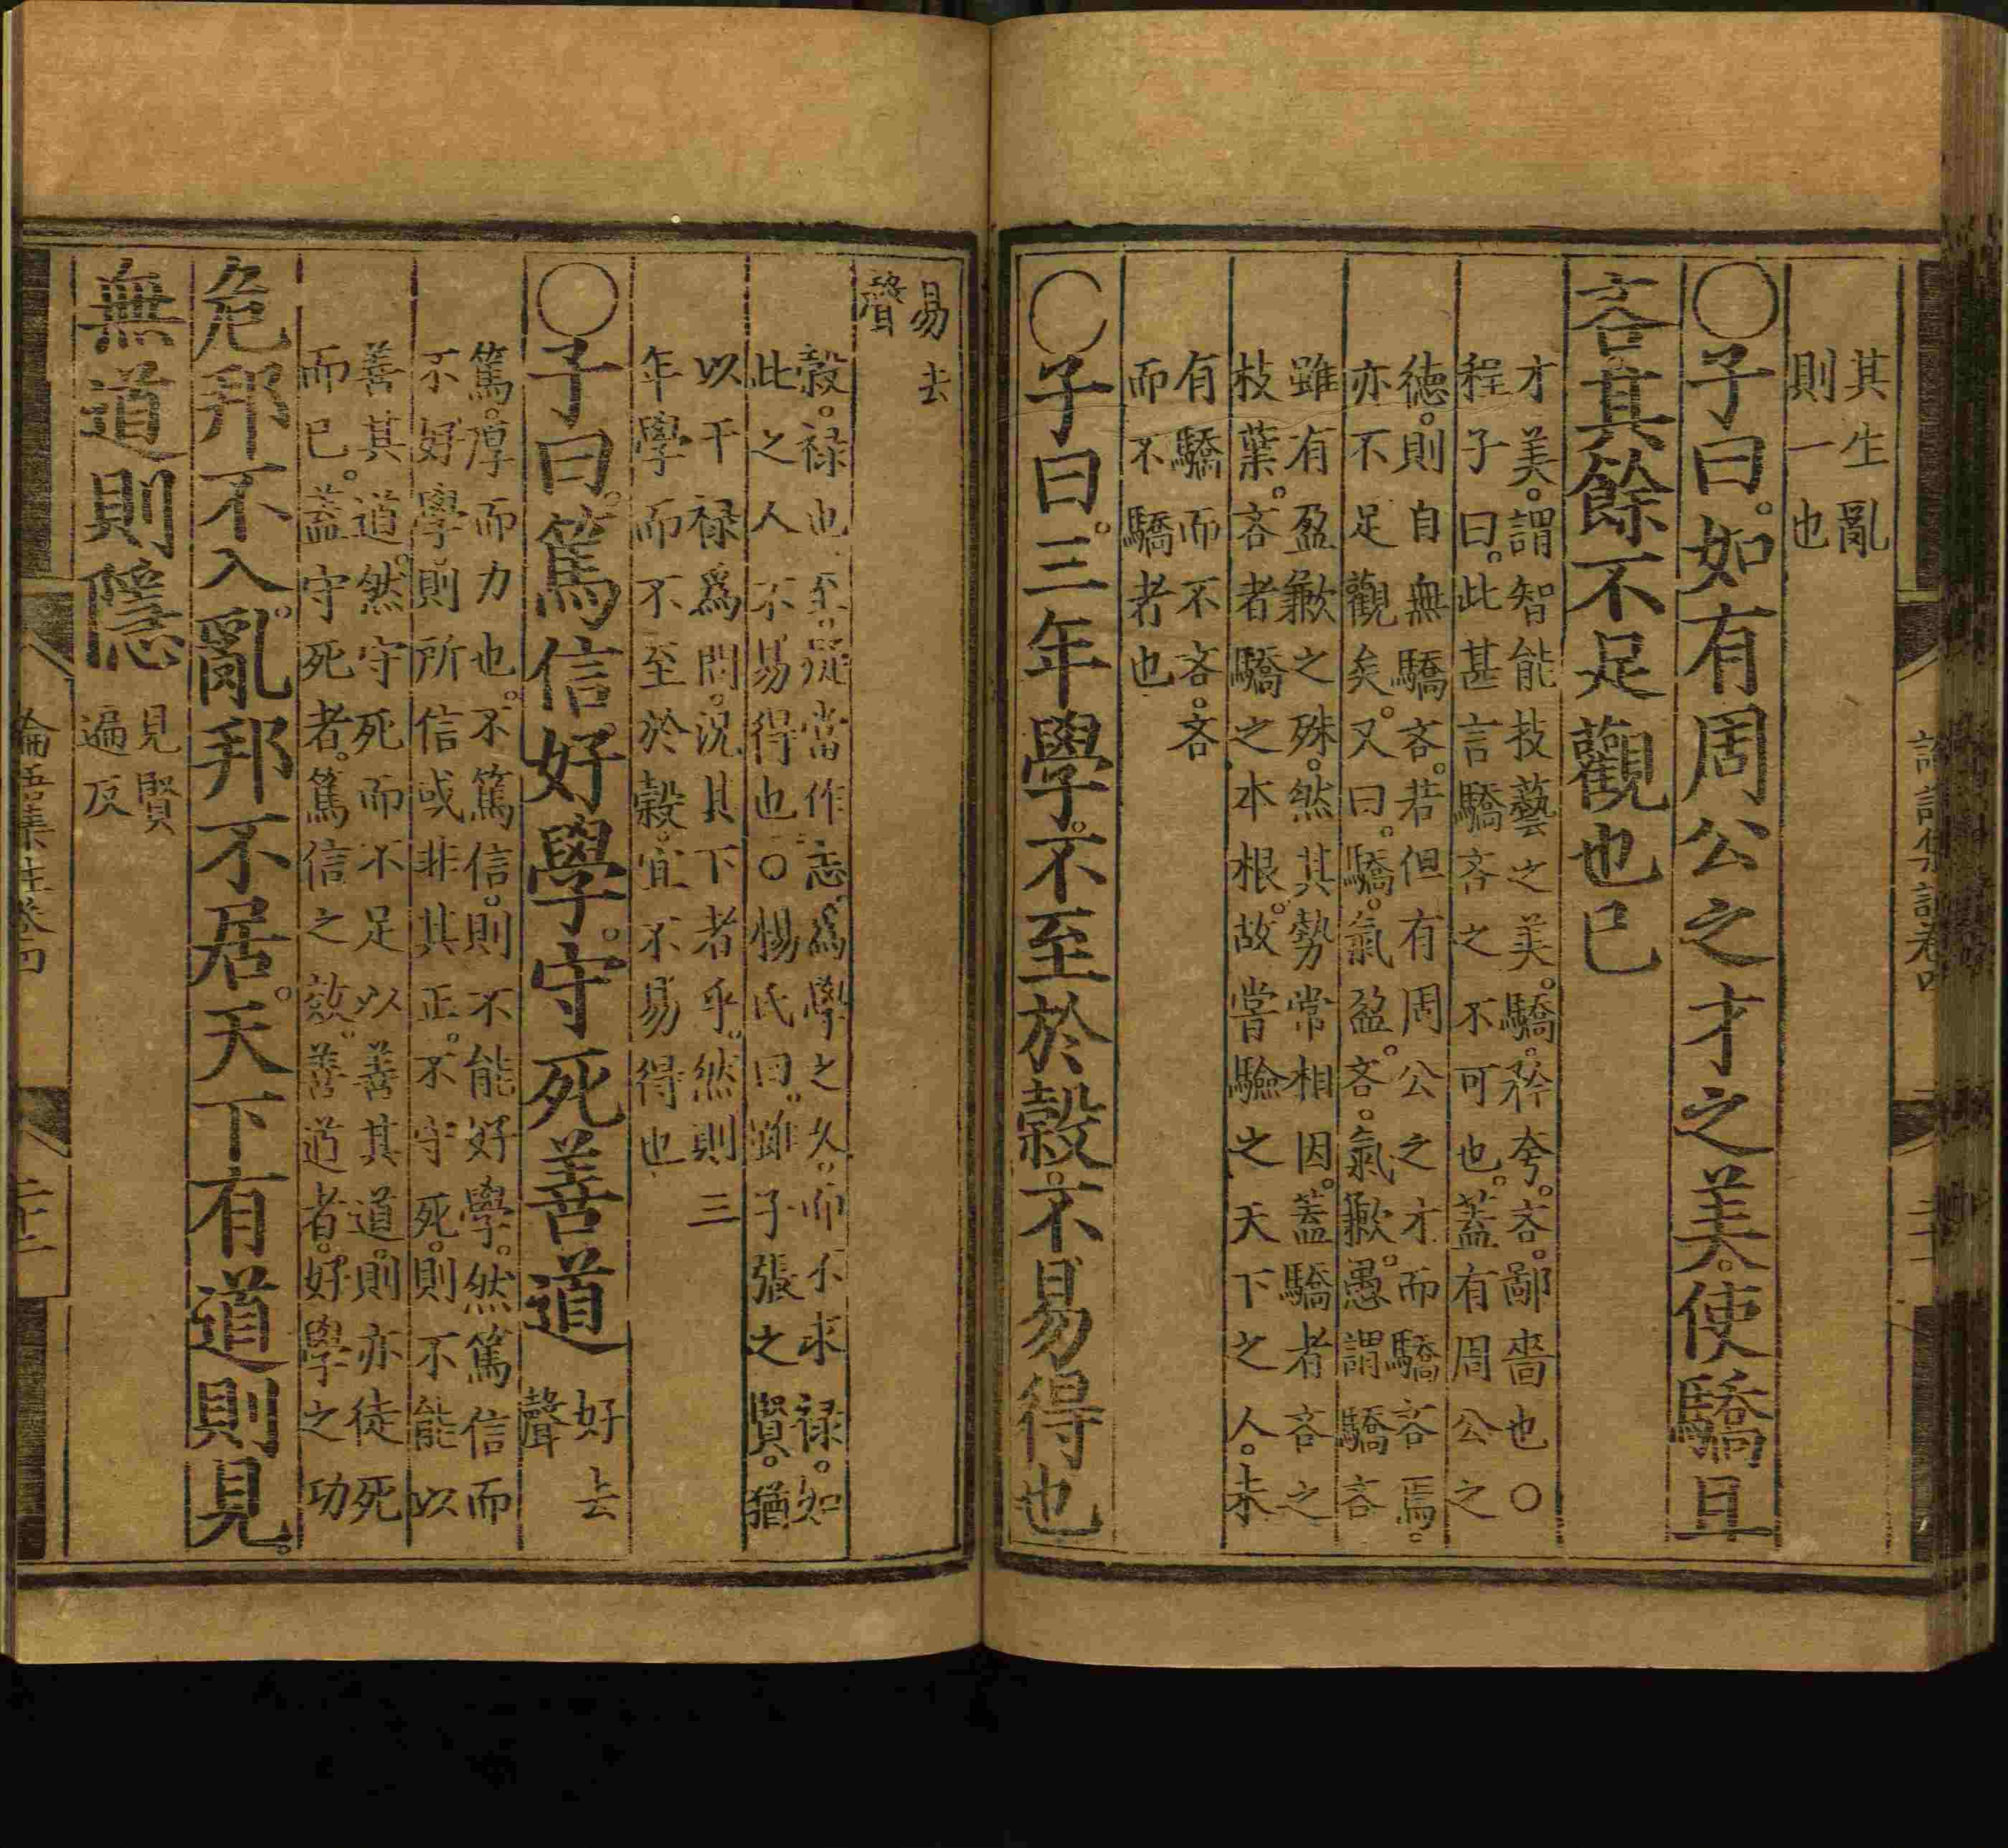 其生亂
則一也
○子曰。如有周公之才之美。使驕且
吝。其餘不足觀也已
才美。謂智能技藝之美。驕。矜夸。吝。鄙嗇也○
程子曰。此甚言驕吝之不可也。蓋有周公之
德。則自無驕吝。若但有周公之才而驕吝焉。
亦不足觀矣。又曰。驕。氣盈。吝。氣歉。愚謂驕吝
雖有盈歉之殊。然其勢常相因。蓋驕者吝之
枝葉。吝者驕之本根。故嘗驗之天下之人。未
有驕而不吝。吝
而不驕者也
○子曰。三年學。不至於穀。不易得也
易去
聲
穀。祿也。至。疑當作志。爲學之久。而不求祿。如
此之人。不易得也○楊氏曰。雖子張之賢。猶
以干祿爲問。況其下者乎。然則三
年學而不至於穀。宜不易得也
○子曰。篤信好學。守死善道
好去
聲
篤。厚而力也。不篤信。則不能好學。然篤信而
不好學。則所信或非其正。不守死。則不能以
善其道。然守死而不足以善其道。則亦徒死
而已。蓋守死者。篤信之效。善道者。好學之功
危邦不入。亂邦不居。天下有道則見。
無道則隱
見賢
遍反
論語集註卷四
二十二